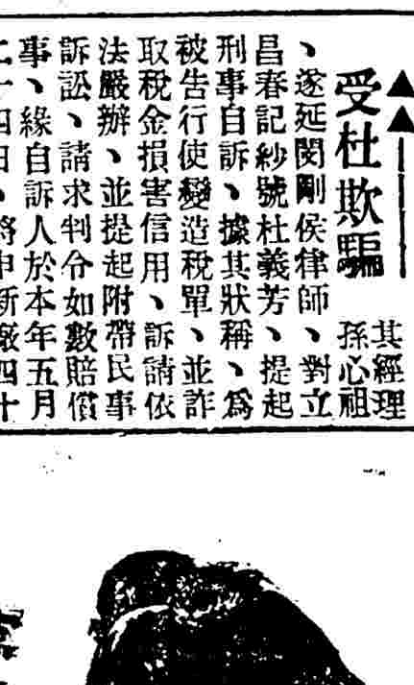 受杜欺騙
其經理
孫心祖
、遂延閔剛侯律師、對立
昌春記紗號杜義芳、提起
刑事自訴、據其狀稱、爲
被告行使變造稅單、並詐
取稅金損害信用、訴請依
法嚴辦、並提起附帶民事
訴訟、請求判令如數賠償
事、緣自訴人於本年五月
二十四日、將申新廠四十